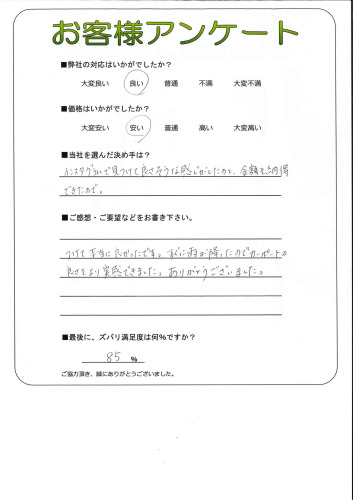 お客様アンケート
■弊社の対応はいかがでしたか？
大変良い 良い 普通 不満 大変不満
■価格はいかがでしたか？
大変安い 安い 普通 高い 大変高い
■当社を選んだ決め手は？
インスタグラムで見つけて良さそうな感じがしたのと、金額も納得
できたので。
■ご感想・ご要望などをお書き下さい。
つけて本当に良かったです。すぐに雨が降ったのでカーポートの
良さをより実感できました。ありがとうございました。
■最後に、ズバリ満足度は何%ですか？
85 %
ご協力頂き、誠にありがとうございました。